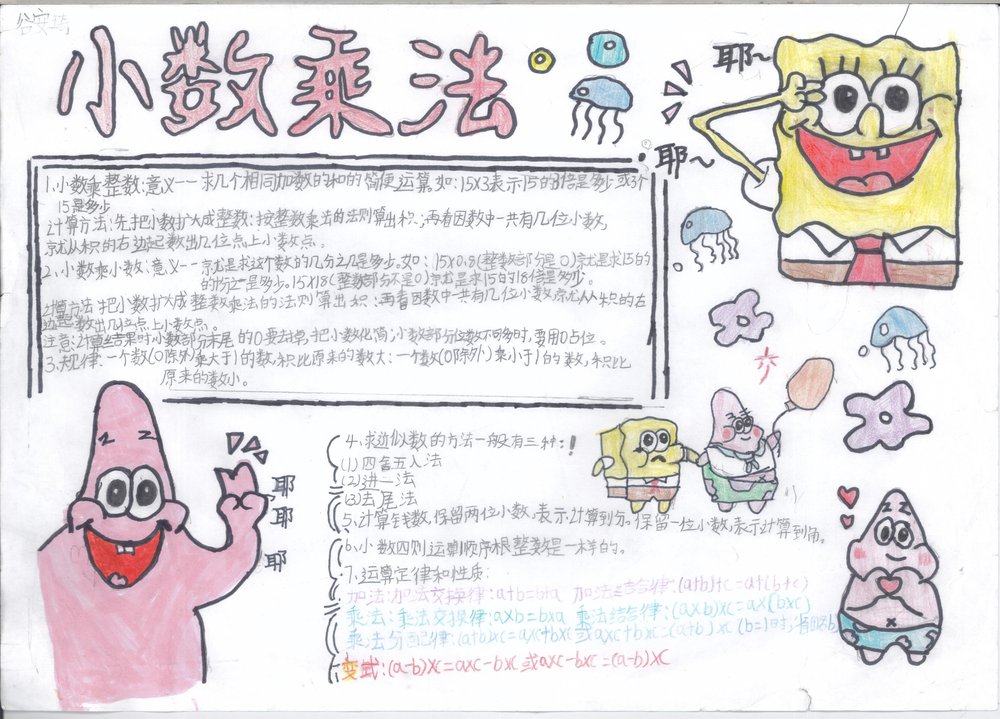 谷安琦
小数乘法
耶~
耶~
1.小数乘整数:意义——求几个相同加数的和的简便运算.如:15×3表示15的3倍是多少或3个
15是多少
计算方法:先把小数扩大成整数;按整数乘法的法则算出积;再看因数中一共有几位小数,
就从积的右边起数出几位点上小数点。
2、小数乘小数、意义——就是求这个数的几分之几是多少。如:15×0.8(整数部分是0)就是求15的
的十分之八是多少。15×1.8(整数部分不是0)就是求15的1.8倍是多少。
计算方法把小数扩大成整数乘法的法则算出积:再看因数中一共有几位小数点就从积的右
边起数出几位点上小数点。
注意:计算结果时小数部分末尾的0要去掉,把小数化简;小数部分位数不同时,要用0占位。
3、规律:一个数(0除外)乘大于1的数,积比原来的数大:一个数(0除外)乘小于1的数,积比
原来的数小。
4、求近似数的方法一般有三种:!
(1)四舍五入法
(2)进一法
(3)去尾法
5、计算钱数,保留两位小数,表示计算到分。保留一位小数,表示计算到角。
6、小数四则运算顺序根整数是一样的。
7、运算定律和性质:
加法:加法交换律:a+b=b+a 加法结合律:(a+b)+c=a+(b+c)
乘法:乘法交换律:a×b=b×a 乘法结合律:(a×b)×c=a×(b×c)
乘法分配律:(a+b)×c=a×c+b×c或a×c+b×c=(a+b)×c (b=1时,省略b)
变式:(a-b)×c=a×c-b×c或a×c-b×c=(a-b)×c
耶
耶
耶